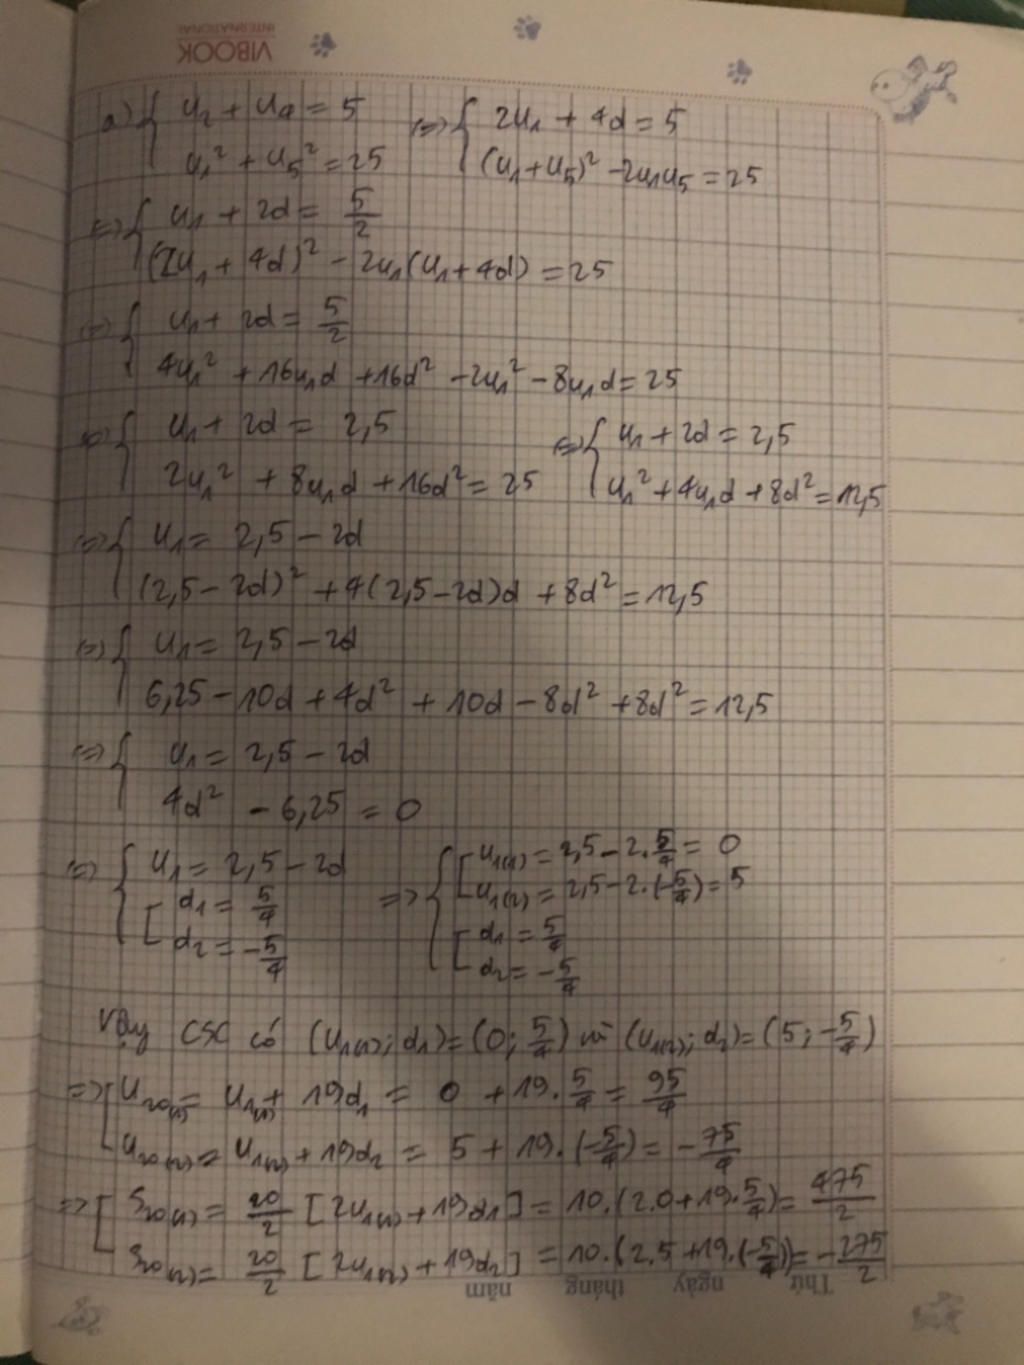 VIBOOK
INTERNATIONAL
a) { u₂ + u₄ = 5 <=> { 2u₁ + 4d = 5
u₁² + u₅² = 25 (u₁+u₅)² - 2u₁u₅ = 25
<=> { u₁ + 2d = 5/2
(2u₁ + 4d)² - 2u₁(u₁ + 4d) = 25
<=> { u₁ + 2d = 5/2
4u₁² + 16u₁d + 16d² - 2u₁² - 8u₁d = 25
<=> { u₁ + 2d = 2,5 <=> { u₁ + 2d = 2,5
2u₁² + 8u₁d + 16d² = 25 u₁² + 4u₁d + 8d² = 12,5
<=> { u₁ = 2,5 - 2d
(2,5 - 2d)² + 4(2,5 - 2d)d + 8d² = 12,5
<=> { u₁ = 2,5 - 2d
6,25 - 10d + 4d² + 10d - 8d² + 8d² = 12,5
<=> { u₁ = 2,5 - 2d
4d² - 6,25 = 0
<=> { u₁ = 2,5 - 2d => { [ u₁₍₁₎ = 2,5 - 2.5/4 = 0
[ d₁ = 5/4 u₁₍₂₎ = 2,5 - 2.(-5/4) = 5
d₂ = -5/4 [ d₁ = 5/4
d₂ = -5/4
Vậy CSC có (u₁₍₁₎; d₁) = (0; 5/4) và (u₁₍₂₎; d₂) = (5; -5/4)
=> [ u₂₀₍₁₎ = u₁₍₁₎ + 19d₁ = 0 + 19.5/4 = 95/4
u₂₀₍₂₎ = u₁₍₂₎ + 19d₂ = 5 + 19.(-5/4) = -75/4
=> [ S₂₀₍₁₎ = 20/2 [2u₁₍₁₎ + 19d₁] = 10.(2.0 + 19.5/4) = 475/2
S₂₀₍₂₎ = 20/2 [2u₁₍₂₎ + 19d₂] = 10.(2.5 + 19.(-5/4)) = -275/2
Thứ ngày tháng năm